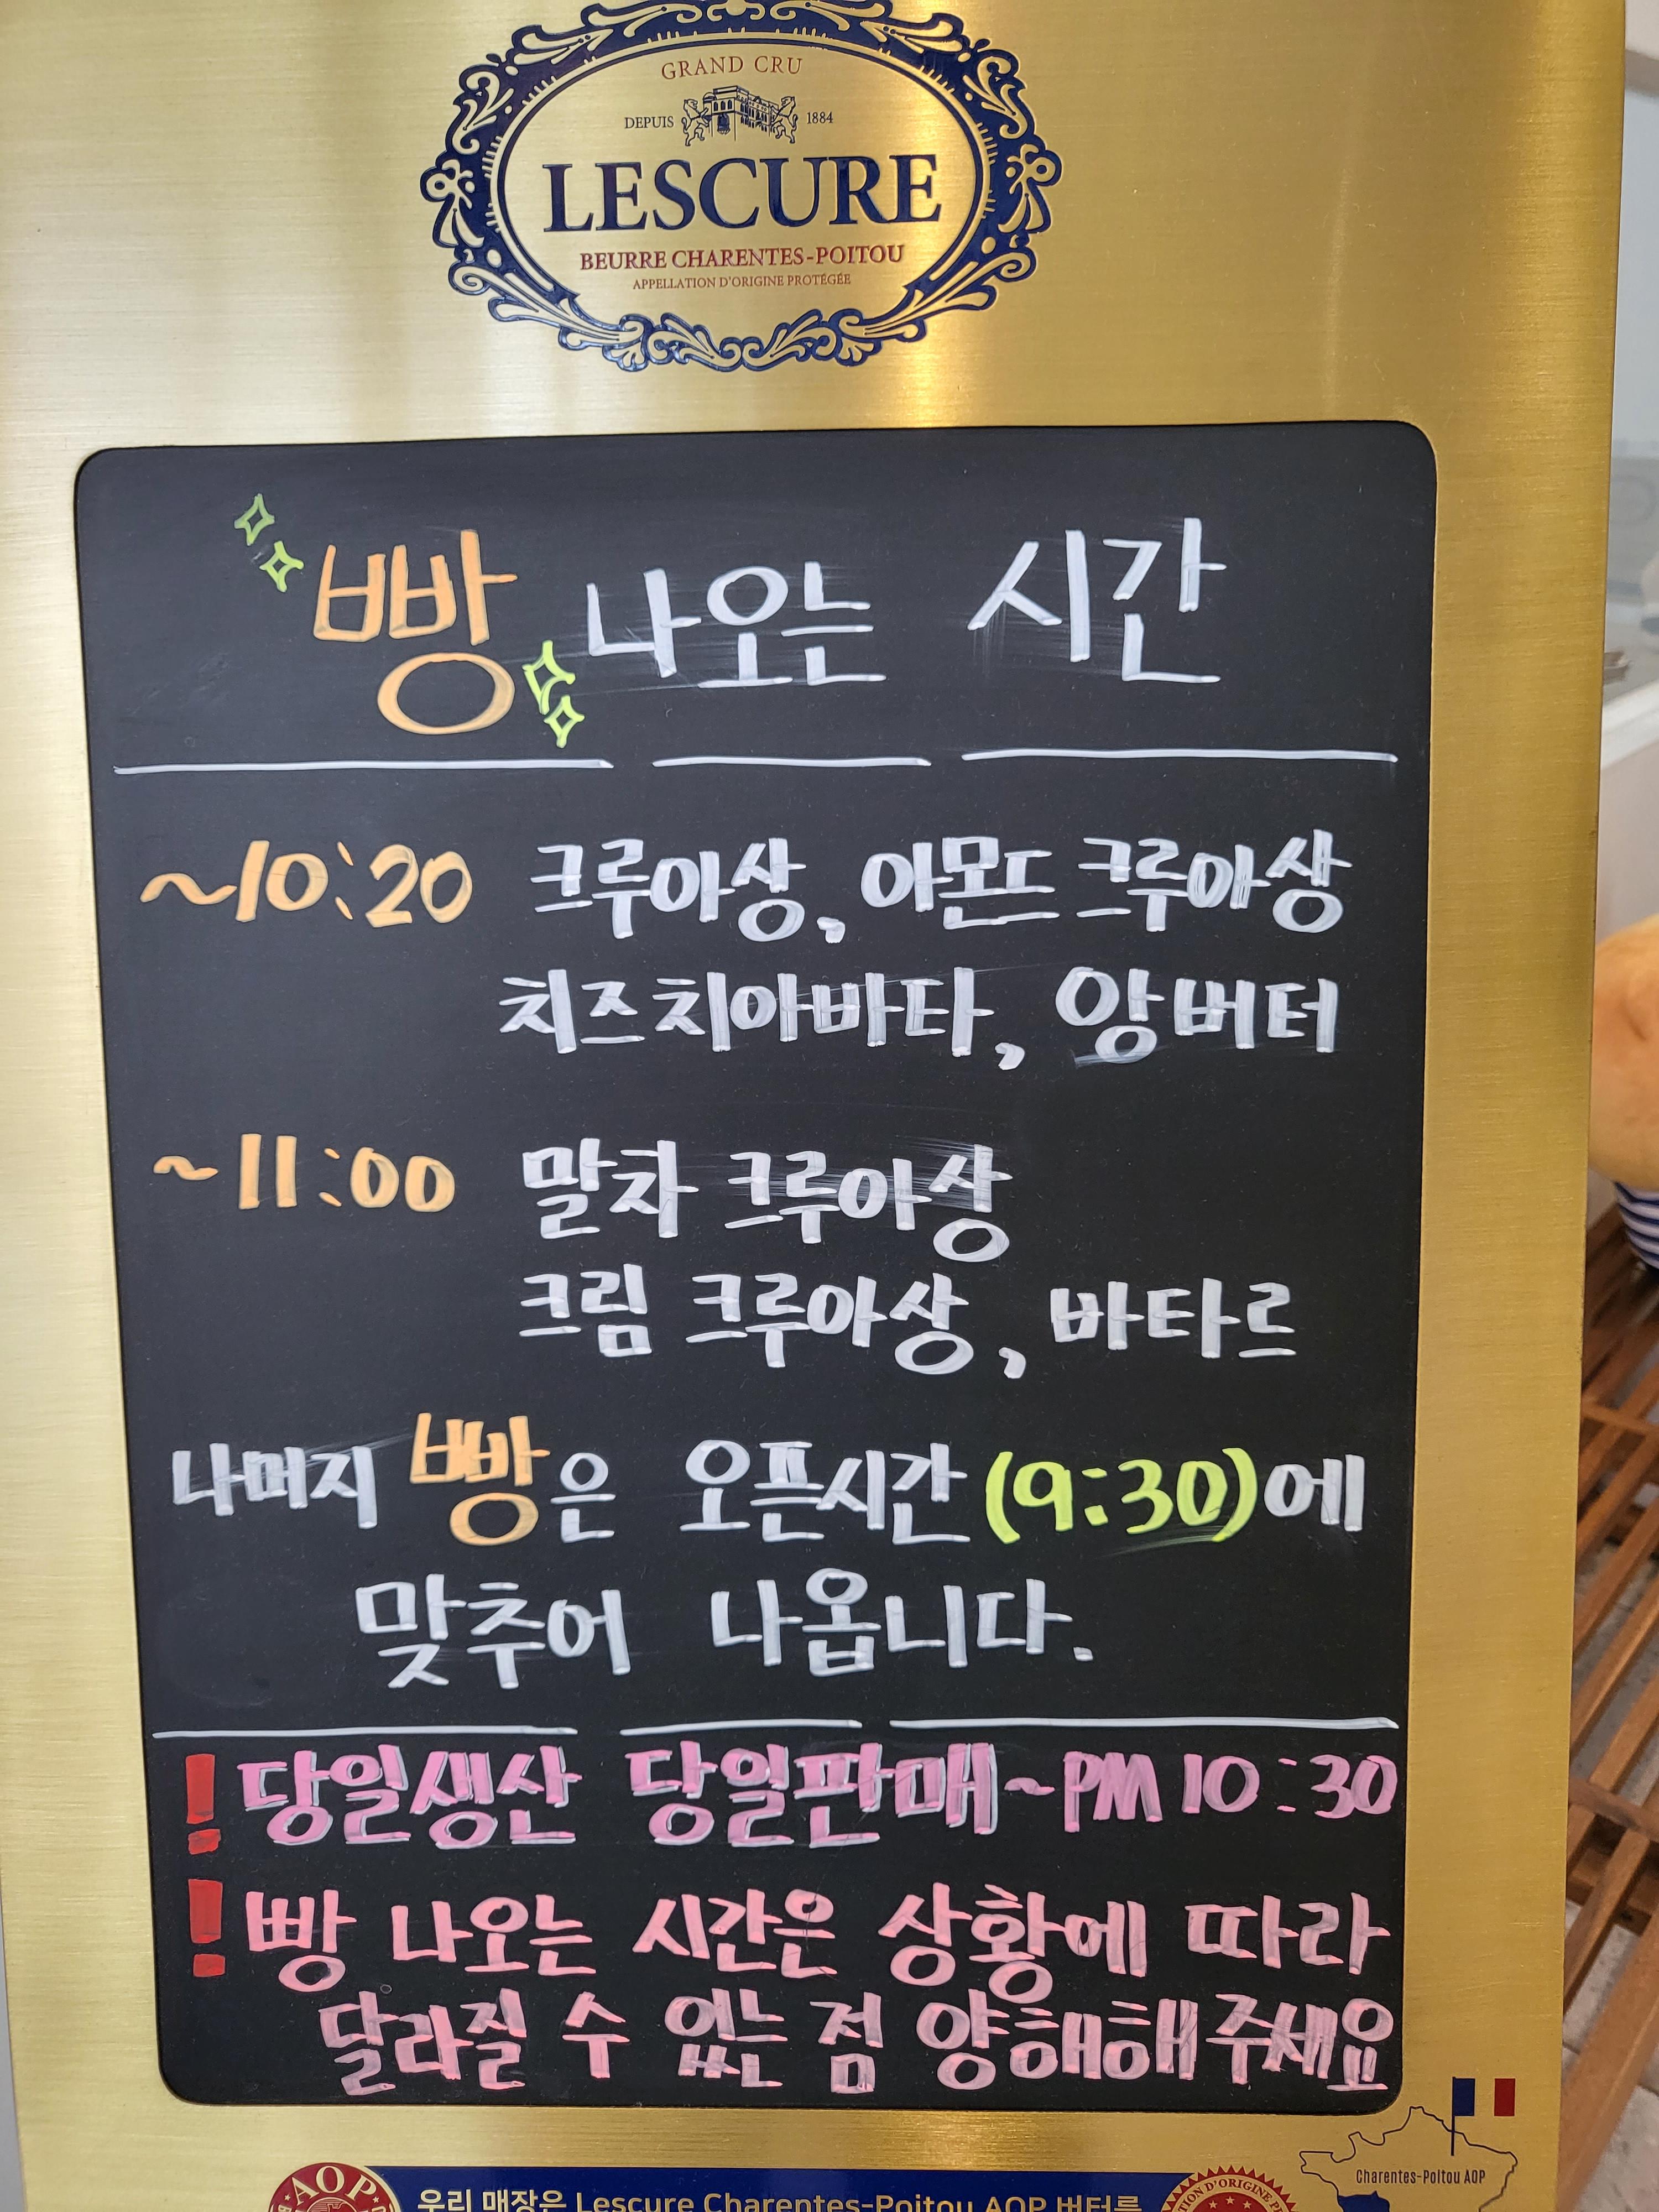 GRAND CRU
DEPUIS 1884
LESCURE
BEURRE CHARENTES-POITOU
APPELLATION D'ORIGINE PROTÉGÉE
빵 나오는 시간
~10:20 크루아상, 아몬드 크루아상
치즈치아바타, 앙버터
~11:00 말차 크루아상
크림 크루아상, 바타르
나머지 빵은 오픈시간(9:30)에
맞추어 나옵니다.
! 당일생산 당일판매~PM 10:30
! 빵 나오는 시간은 상황에 따라
달라질 수 있는 점 양해해주세요
Charentes-Poitou AOP
AOP
우리 매장은 Lescure Charentes-Poitou AOP 버터를
D'ORIGINE